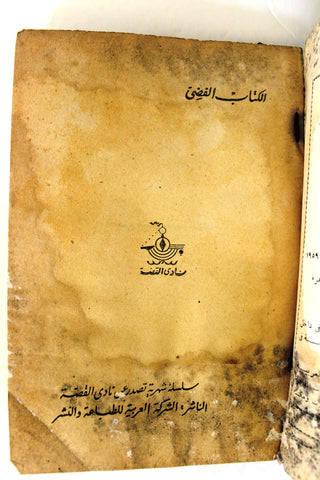 الكتاب الفضي
نادى القصة
سلسلة شهرية تصدر عن نادى القصة
الناشر: الشركة العربية للطباعة والنشر
١٩٥٩